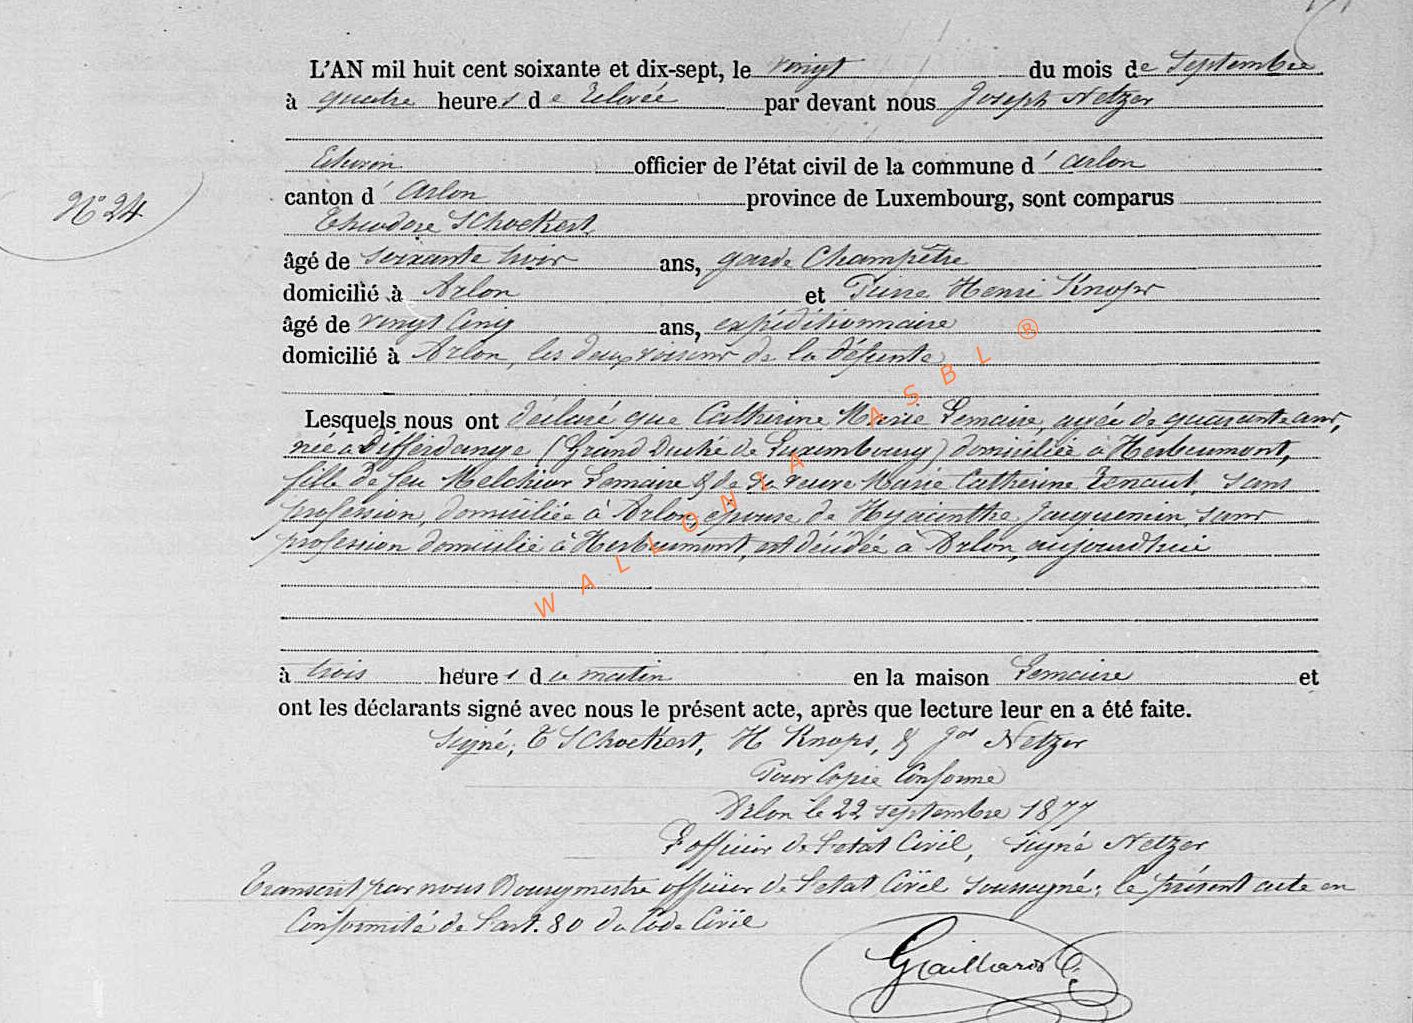 L'AN mil huit cent soixante et dix-sept, le vingt du mois de Septembre
à quatre heures de relevée par devant nous Joseph Netzer
Echevin officier de l'état civil de la commune d'Arlon
N° 24
canton d'Arlon province de Luxembourg, sont comparus
Théodore Schockert,
âgé de soixante trois ans, garde Champêtre
domicilié à Arlon et Pierre Henri Knops
âgé de vingt cinq ans, expéditionnaire
domicilié à Arlon, les deux voisins de la défunte
Lesquels nous ont déclaré que Catherine Marie Lemaire, agée de quarante ans,
née à Differdange (Grand Duché de Luxembourg) domiciliée à Herbeumont,
fille de feu Melchior Lemaire & de sa veuve Marie Catherine sans
profession, domiciliée à Arlon, épouse de Hyacinthe Jacquemin, sans
profession domicilié à Herbeumont, est décédée à Arlon, aujourd'hui
à trois heures du matin en la maison Lemaire et
ont les déclarants signé avec nous le présent acte, après que lecture leur en a été faite.
Signé, T Schockert, H Knops, & Jos Netzer
Pour Copie Conforme
Arlon le 22 septembre 1877
L'officier de l'etat Civil, signé Netzer
Transcrit par nous Bourgmestre officier de l'etat Civil soussigné, le présent acte en
Conformité de l'art. 80 du Code Civil
Gaillard
WALLONIA ASBL ®